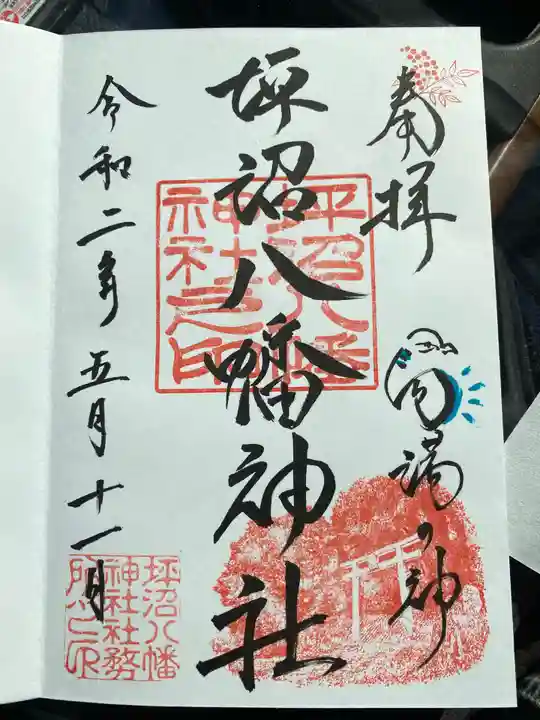 奉拝
坪沼八幡神社
令和二年五月十一日
坪沼八幡
神社之印
坪沼八幡
神社社務
所之印